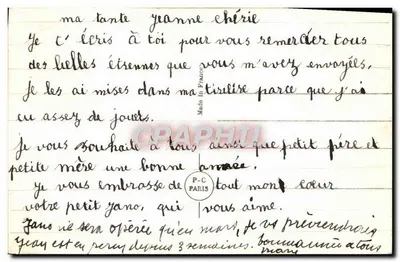 ma tante Jeanne chérie
Je t'écris à toi pour vous remercier tous
des belles étrennes que vous m'avez envoyées,
je les ai mises dans ma tirelire parce que j'ai
eu assez de jouets.
Je vous souhaite à tous ainsi que petit père et
petite mère une bonne année.
Je vous embrasse de tout mon cœur
votre petit Jano, qui vous aime.
Jano ne sera opérée qu'en mars, je vs préviendrais
Jean est en perm depuis 3 semaines. bonne année à tous
Made in France
CPARAMA
P-C
PARIS